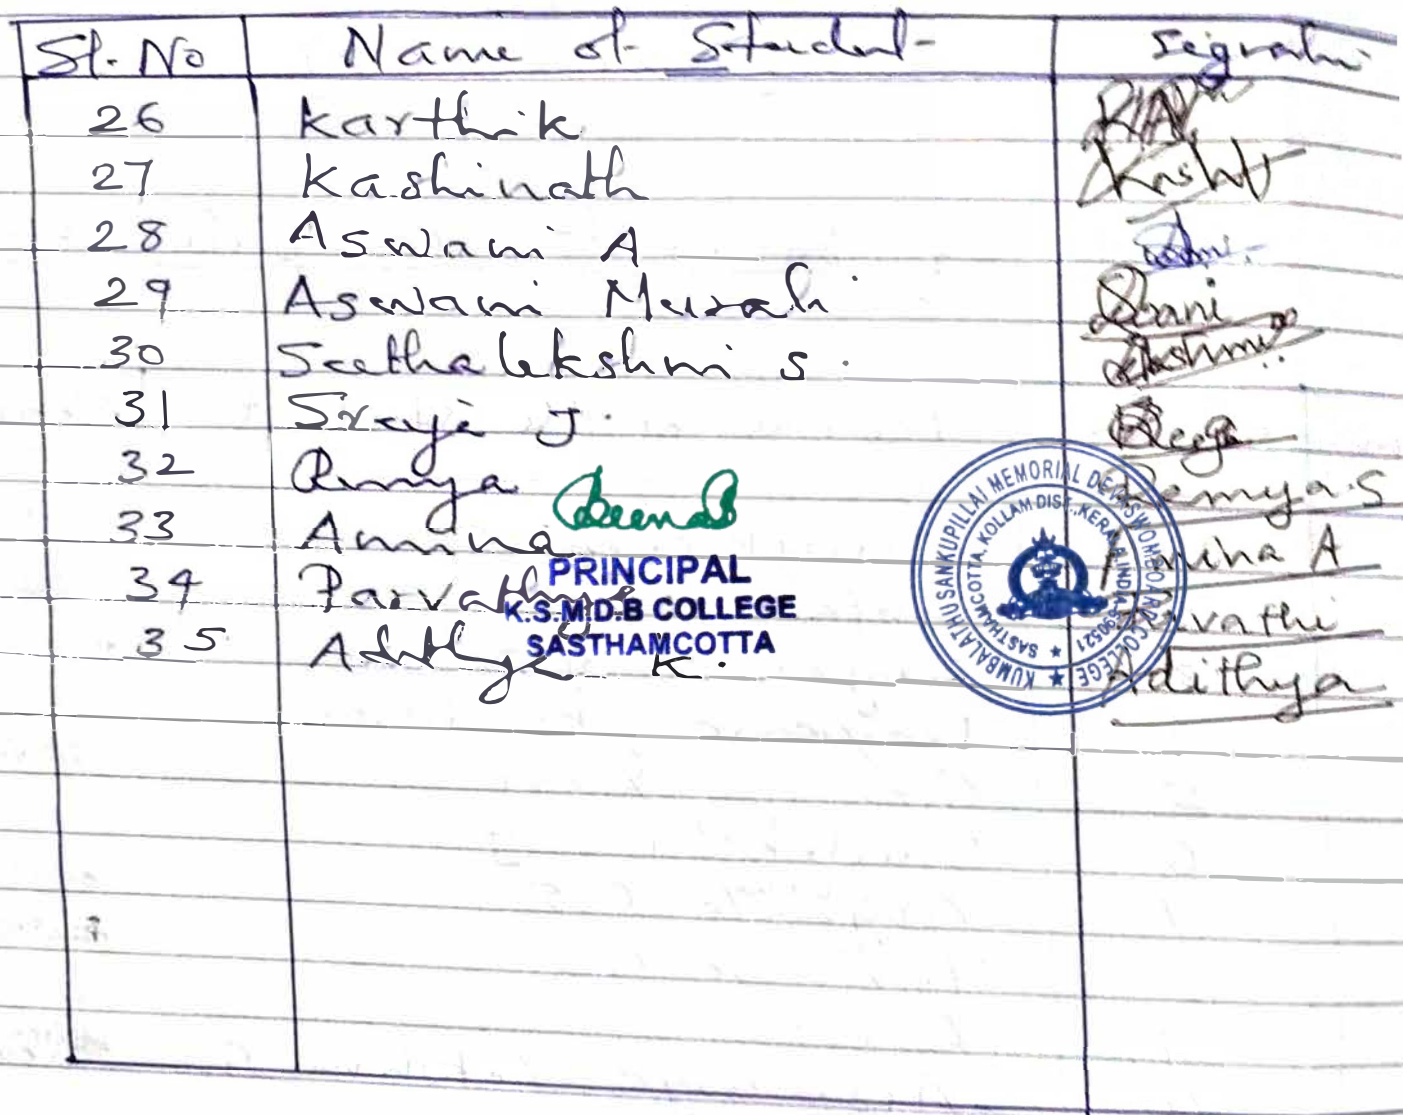 Sl. No Name of Student Signature
26 Karthik
27 Kashinath Kashi
28 Aswani A
29 Aswani Murali
30 Seethalekshmi S. Lakshmi
31 J.
32 Remya Remya.S
33 Amina Amina A
34 Parvathy Parvathi
35 Adithya K. Adithya
PRINCIPAL
K.S.M.D.B COLLEGE
SASTHAMCOTTA
KUMBALATHU SANKUPILLAI MEMORIAL DEVASWOM BOARD COLLEGE
SASTHAMCOTTA, KOLLAM DIST., KERALA, INDIA-690521